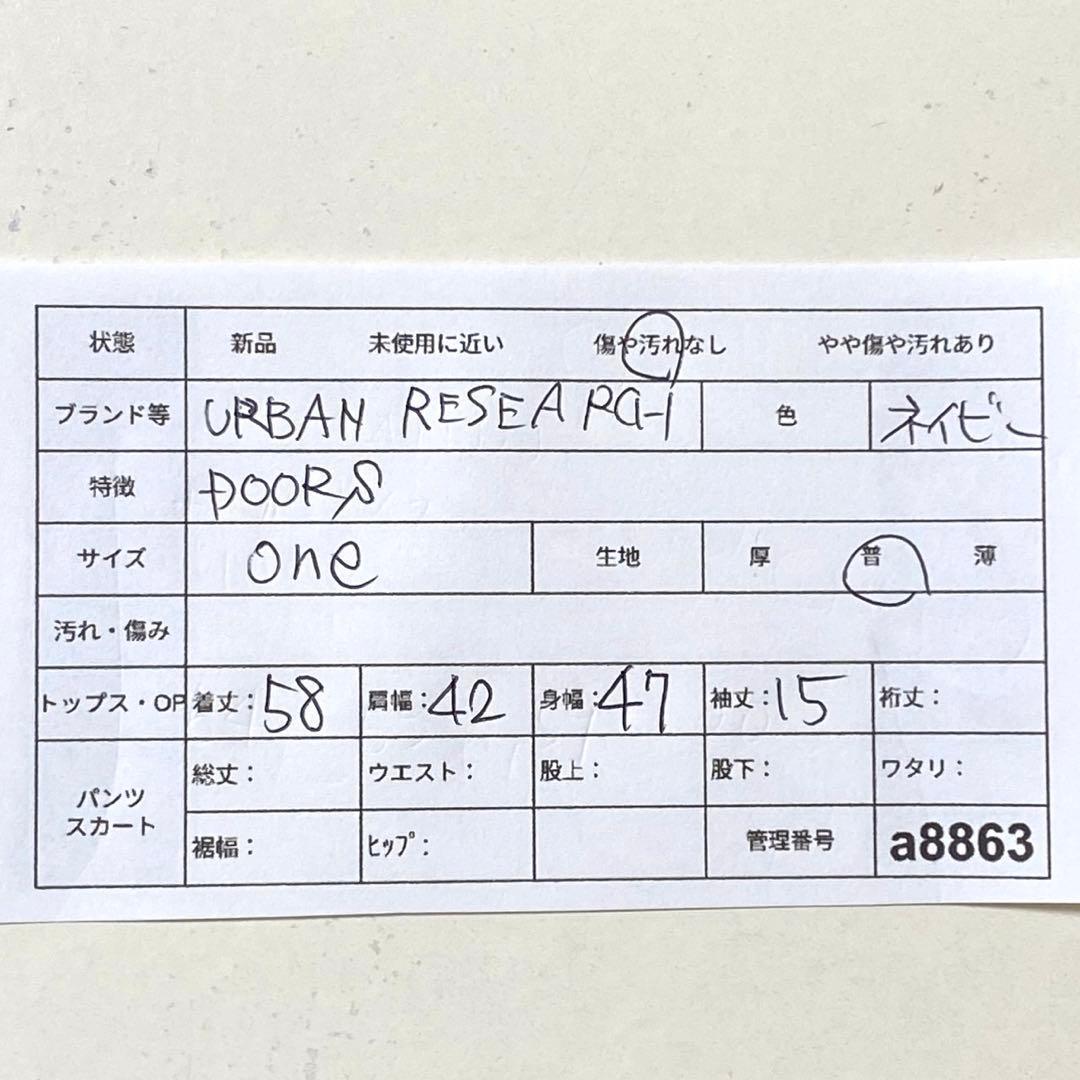 状態 新品 未使用に近い 傷や汚れなし やや傷や汚れあり
ブランド等 URBAN RESEARCH 色 ネイビー
特徴 DOORS
サイズ one 生地 厚 普 薄
汚れ・傷み
トップス・OP 着丈：58 肩幅：42 身幅：47 袖丈：15 裄丈：
パンツ スカート
総丈： ウエスト： 股上： 股下： ワタリ：
裾幅： ヒップ： 管理番号 a8863